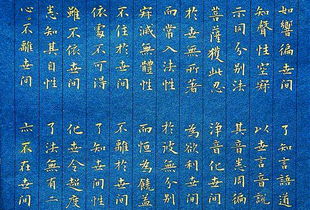 如響徧世間　了知言語道
知聲性空寂　以世言音說
示同分別法　其音悉周徧
菩薩獲此忍　淨音化世間
於世無所著　為欲利世間
而常入法性　於彼無分別
寂滅無體性　而恒為饒益
不住於世間　不離於世間
依處不可得　了知世間性
雖不依世間　化世令超度
悉知其自性　了法無有二
心不離世間　亦不在世間